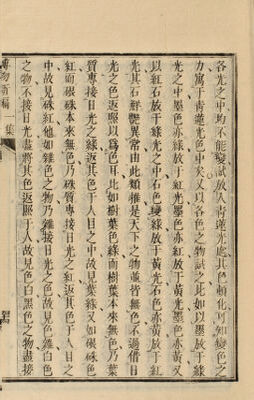 各光之中均不能變試放入青蓮光處其色頓化可知變色之
力寓于青蓮光色中矣又以各色之物試之比如以墨放于綠
光之中墨色亦綠放于紅光墨色亦紅放于黃光墨色亦黃又
以紅石放于綠光之中石色變綠放于黃光石色亦黃放于紅
光其石鮮艷異常由此類推是天下之物並皆無色不過借日
光之色返照以爲色耳比如樹葉色綠而樹葉本來無色乃葉
質專接日光之綠返其色于人目之中故見葉綠又如硃砂色
紅而硃砂本來無色乃硃質專接日光之紅返其色于人目之
中故見硃紅他如雜色之物乃雜接日光之色故見色雜白色
之物不接日光盡將其色返照于人目故見色白黑色之物盡接
博物新編一集